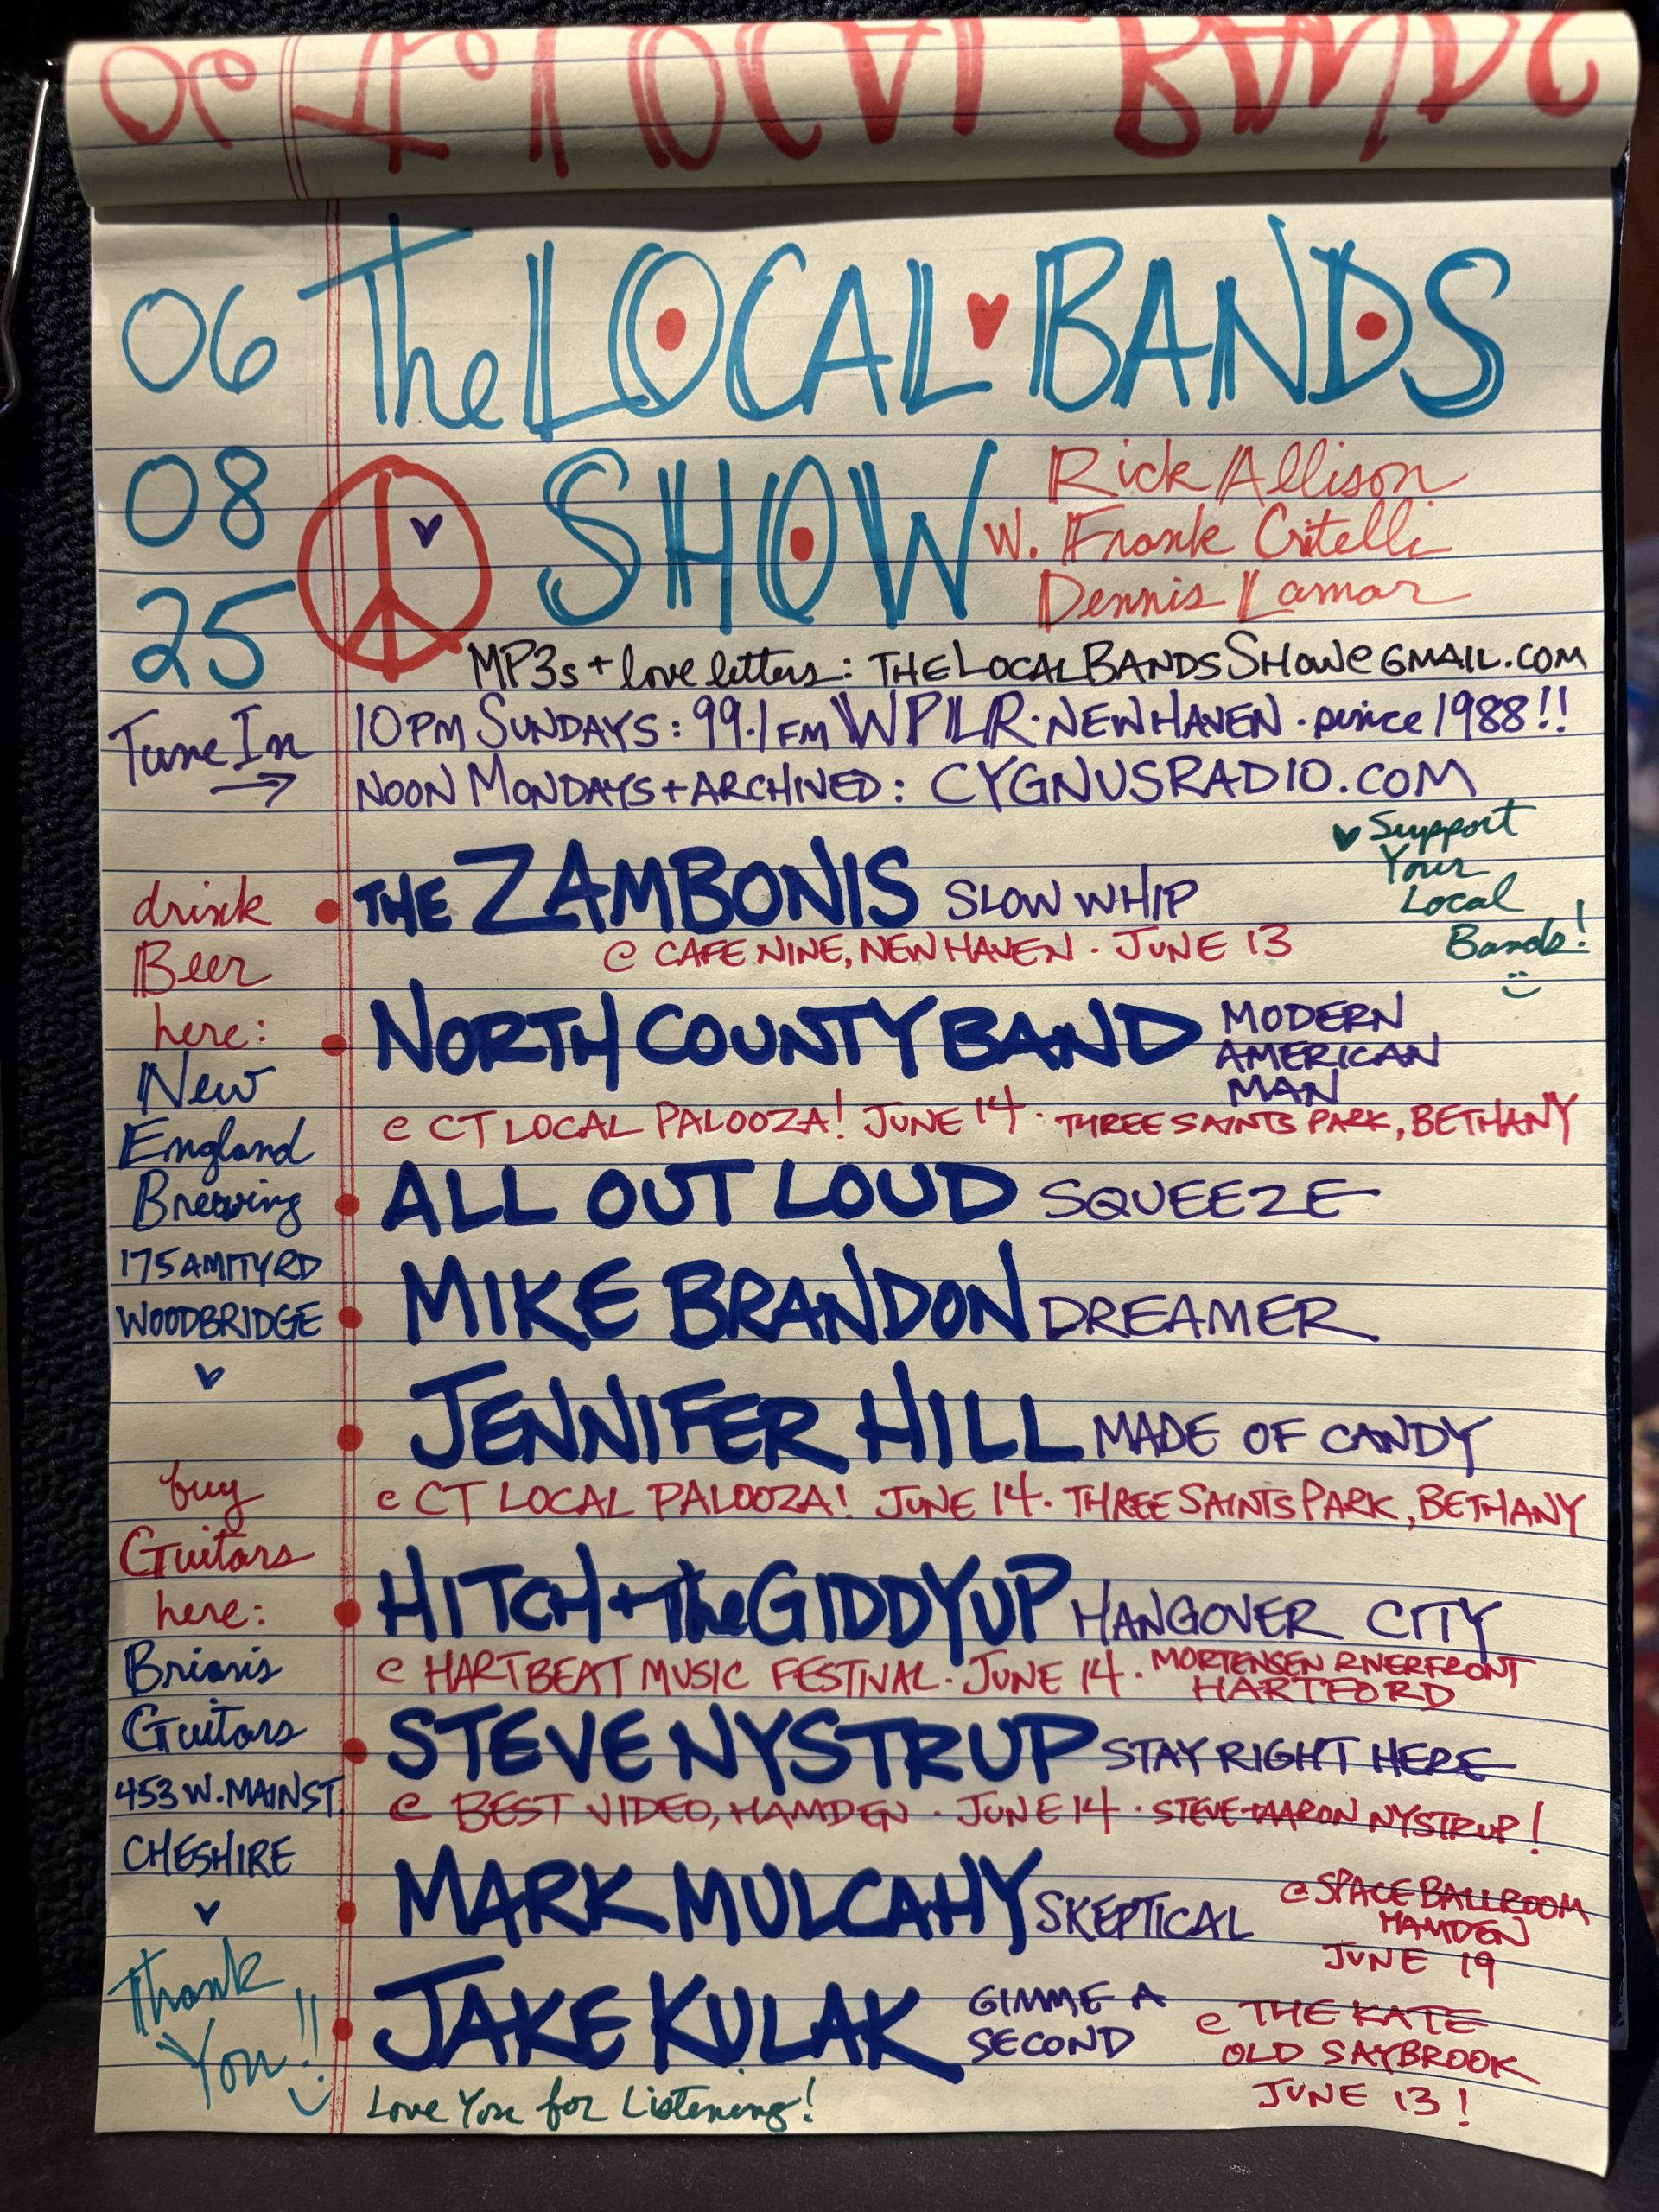 06
08
25
The LOCAL BANDS
SHOW
Rick Allison
W. Frank Critelli
Dennis Lamar
MP3s + love letters: THELOCALBANDSSHOW@GMAIL.COM
Tune In
10PM SUNDAYS: 99.1 FM WPLR · NEW HAVEN · since 1988!!
NOON MONDAYS + ARCHIVED: CYGNUSRADIO.COM
Support
Your
Local
Bands!
THE ZAMBONIS SLOW WHIP
@ CAFE NINE, NEW HAVEN · JUNE 13
NORTH COUNTY BAND MODERN
AMERICAN
MAN
@ CT LOCAL PALOOZA! JUNE 14 · THREE SAINTS PARK, BETHANY
ALL OUT LOUD SQUEEZE
MIKE BRANDON DREAMER
JENNIFER HILL MADE OF CANDY
@ CT LOCAL PALOOZA! JUNE 14 · THREE SAINTS PARK, BETHANY
HITCH + The GIDDYUP HANGOVER CITY
@ HARTBEAT MUSIC FESTIVAL · JUNE 14 · MORTENSEN RIVERFRONT
HARTFORD
STEVE NYSTRUP STAY RIGHT HERE
@ BEST VIDEO, HAMDEN · JUNE 14 · STEVE + AARON NYSTRUP!
MARK MULCAHY SKEPTICAL
@ SPACE BALLROOM
HAMDEN
JUNE 19
JAKE KULAK GIMME A
SECOND
@ THE KATE
OLD SAYBROOK
JUNE 13!
Love You for Listening!
drink
Beer
here:
New
England
Brewing
175 AMITY RD
WOODBRIDGE
buy
Guitars
here:
Brian's
Guitars
453 W. MAIN ST.
CHESHIRE
Thank
You!!